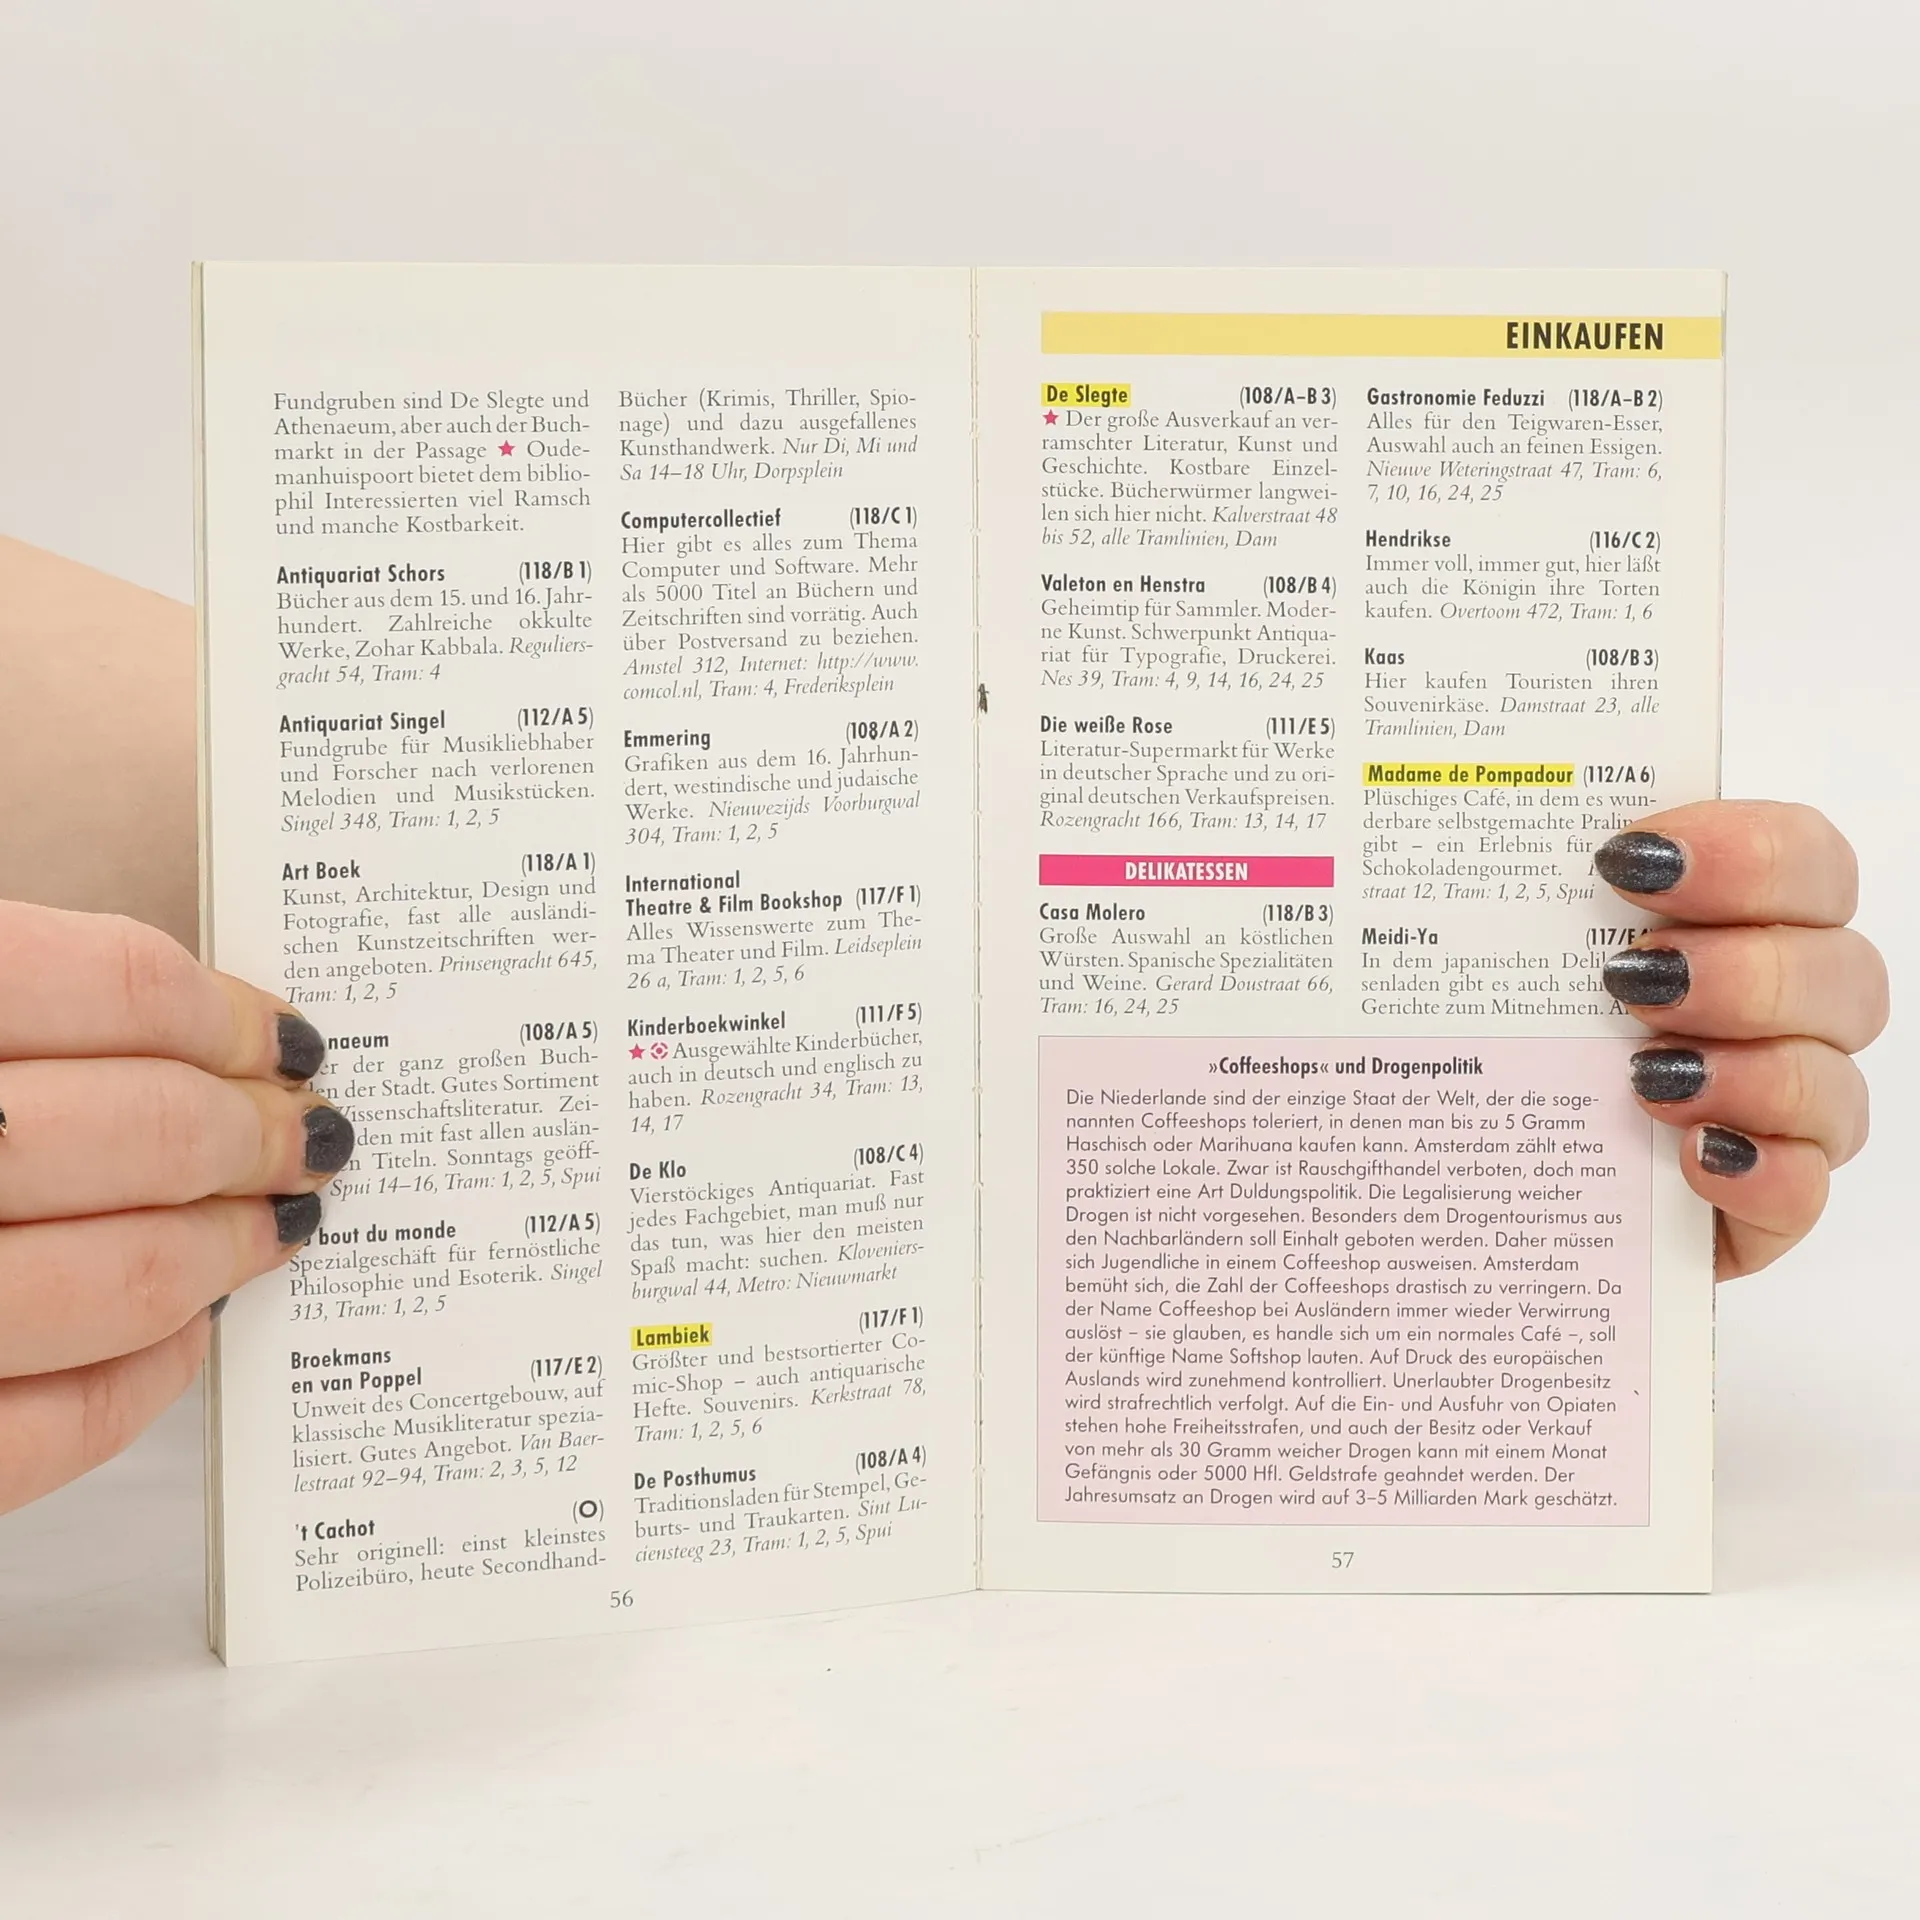 Fundgruben sind De Slegte und
Athenaeum, aber auch der Buch-
markt in der Passage ★ Oude-
manhuispoort bietet dem biblio-
phil Interessierten viel Ramsch
und manche Kostbarkeit.
Antiquariat Schors (118/B 1)
Bücher aus dem 15. und 16. Jahr-
hundert. Zahlreiche okkulte
Werke, Zohar Kabbala. Reguliers-
gracht 54, Tram: 4
Antiquariat Singel (112/A 5)
Fundgrube für Musikliebhaber
und Forscher nach verlorenen
Melodien und Musikstücken.
Singel 348, Tram: 1, 2, 5
Art Boek (118/A 1)
Kunst, Architektur, Design und
Fotografie, fast alle ausländi-
schen Kunstzeitschriften wer-
den angeboten. Prinsengracht 645,
Tram: 1, 2, 5
(108/A 5)
der ganz großen Buch-
der Stadt. Gutes Sortiment
Wissenschaftsliteratur. Zei-
den mit fast allen auslän-
Titeln. Sonntags geöff-
Spui 14–16, Tram: 1, 2, 5, Spui
bout du monde (112/A 5)
Spezialgeschäft für fernöstliche
Philosophie und Esoterik. Singel
313, Tram: 1, 2, 5
Broekmans
en van Poppel (117/E 2)
Unweit des Concertgebouw, auf
klassische Musikliteratur spezia-
lisiert. Gutes Angebot. Van Baer-
lestraat 92–94, Tram: 2, 3, 5, 12
't Cachot (O)
Sehr originell: einst kleinstes
Polizeibüro, heute Secondhand-
Bücher (Krimis, Thriller, Spio-
nage) und dazu ausgefallenes
Kunsthandwerk. Nur Di, Mi und
Sa 14–18 Uhr, Dorpsplein
Computercollectief (118/C 1)
Hier gibt es alles zum Thema
Computer und Software. Mehr
als 5000 Titel an Büchern und
Zeitschriften sind vorrätig. Auch
über Postversand zu beziehen.
Amstel 312, Internet: http://www.
comcol.nl, Tram: 4, Frederiksplein
Emmering (108/A 2)
Grafiken aus dem 16. Jahrhun-
dert, westindische und judaische
Werke. Nieuwezijds Voorburgwal
304, Tram: 1, 2, 5
International
Theatre & Film Bookshop (117/F 1)
Alles Wissenswerte zum The-
ma Theater und Film. Leidseplein
26 a, Tram: 1, 2, 5, 6
Kinderboekwinkel (111/F 5)
★ Ausgewählte Kinderbücher,
auch in deutsch und englisch zu
haben. Rozengracht 34, Tram: 13,
14, 17
De Klo (108/C 4)
Vierstöckiges Antiquariat. Fast
jedes Fachgebiet, man muß nur
das tun, was hier den meisten
Spaß macht: suchen. Kloveniers-
burgwal 44, Metro: Nieuwmarkt
Lambiek (117/F 1)
Größter und bestsortierter Co-
mic-Shop – auch antiquarische
Hefte. Souvenirs. Kerkstraat 78,
Tram: 1, 2, 5, 6
De Posthumus (108/A 4)
Traditionsladen für Stempel, Ge-
burts- und Traukarten. Sint Lu-
ciensteeg 23, Tram: 1, 2, 5, Spui
56
EINKAUFEN
De Slegte (108/A–B 3)
★ Der große Ausverkauf an ver-
ramschter Literatur, Kunst und
Geschichte. Kostbare Einzel-
stücke. Bücherwürmer langwei-
len sich hier nicht. Kalverstraat 48
bis 52, alle Tramlinien, Dam
Valeton en Henstra (108/B 4)
Geheimtip für Sammler. Moder-
ne Kunst. Schwerpunkt Antiqua-
riat für Typografie, Druckerei.
Nes 39, Tram: 4, 9, 14, 16, 24, 25
Die weiße Rose (111/E 5)
Literatur-Supermarkt für Werke
in deutscher Sprache und zu ori-
ginal deutschen Verkaufspreisen.
Rozengracht 166, Tram: 13, 14, 17
DELIKATESSEN
Casa Molero (118/B 3)
Große Auswahl an köstlichen
Würsten. Spanische Spezialitäten
und Weine. Gerard Doustraat 66,
Tram: 16, 24, 25
Gastronomie Feduzzi (118/A–B 2)
Alles für den Teigwaren-Esser,
Auswahl auch an feinen Essigen.
Nieuwe Weteringstraat 47, Tram: 6,
7, 10, 16, 24, 25
Hendrikse (116/C 2)
Immer voll, immer gut, hier läßt
auch die Königin ihre Torten
kaufen. Overtoom 472, Tram: 1, 6
Kaas (108/B 3)
Hier kaufen Touristen ihren
Souvenirkäse. Damstraat 23, alle
Tramlinien, Dam
Madame de Pompadour (112/A 6)
Plüschiges Café, in dem es wun-
derbare selbstgemachte
gibt – ein Erlebnis für
Schokoladengourmet.
straat 12, Tram: 1, 2, 5, Spui
Meidi-Ya
In dem japanischen
senladen gibt es auch
Gerichte zum Mitnehmen.
»Coffeeshops« und Drogenpolitik
Die Niederlande sind der einzige Staat der Welt, der die soge-
nannten Coffeeshops toleriert, in denen man bis zu 5 Gramm
Haschisch oder Marihuana kaufen kann. Amsterdam zählt etwa
350 solche Lokale. Zwar ist Rauschgifthandel verboten, doch man
praktiziert eine Art Duldungspolitik. Die Legalisierung weicher
Drogen ist nicht vorgesehen. Besonders dem Drogentourismus aus
den Nachbarländern soll Einhalt geboten werden. Daher müssen
sich Jugendliche in einem Coffeeshop ausweisen. Amsterdam
bemüht sich, die Zahl der Coffeeshops drastisch zu verringern. Da
der Name Coffeeshop bei Ausländern immer wieder Verwirrung
auslöst – sie glauben, es handle sich um ein normales Café –, soll
der künftige Name Softshop lauten. Auf Druck des europäischen
Auslands wird zunehmend kontrolliert. Unerlaubter Drogenbesitz
wird strafrechtlich verfolgt. Auf die Ein- und Ausfuhr von Opiaten
stehen hohe Freiheitsstrafen, und auch der Besitz oder Verkauf
von mehr als 30 Gramm weicher Drogen kann mit einem Monat
Gefängnis oder 5000 Hfl. Geldstrafe geahndet werden. Der
Jahresumsatz an Drogen wird auf 3–5 Milliarden Mark geschätzt.
57